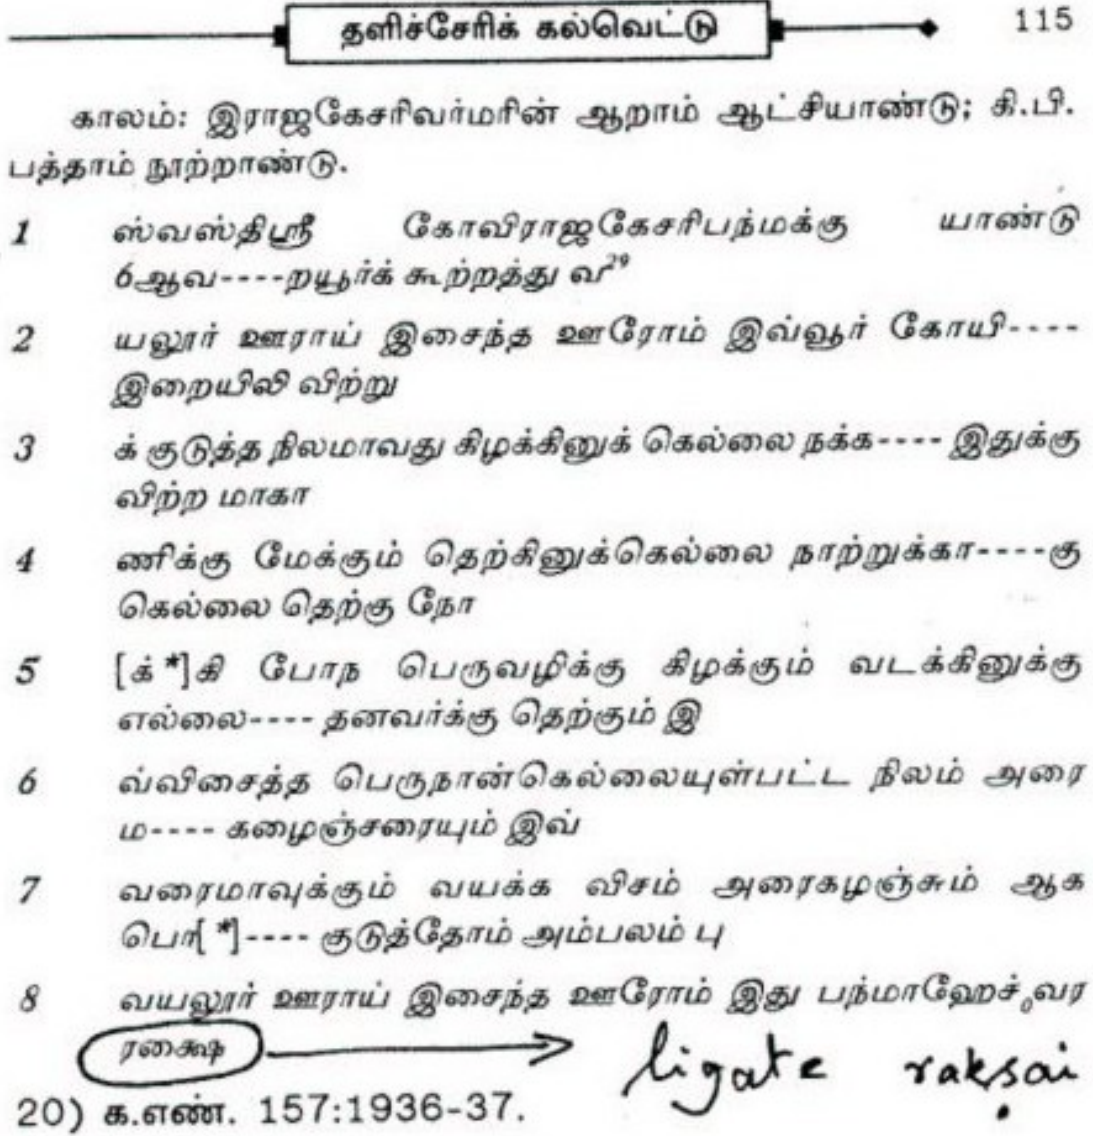 தளிச்சேரிக் கல்வெட்டு 115
காலம்: இராஜகேசரிவர்மரின் ஆறாம் ஆட்சியாண்டு; கி.பி.
பத்தாம் நூற்றாண்டு.
1 ஸ்வஸ்திஸ்ரீ கோவிராஜகேசரிபந்மக்கு யாண்டு
6ஆவ----றயூர்க் கூற்றத்து வ²⁹
2 யலூர் ஊராய் இசைந்த ஊரோம் இவ்வூர் கோயி----
இறையிலி விற்று
3 க் குடுத்த நிலமாவது கிழக்கினுக் கெல்லை நக்க---- இதுக்கு
விற்ற மாகா
4 ணிக்கு மேக்கும் தெற்கினுக்கெல்லை நாற்றுக்கா----கு
கெல்லை தெற்கு நோ
5 [க்*]கி போந பெருவழிக்கு கிழக்கும் வடக்கினுக்கு
எல்லை---- தனவர்க்கு தெற்கும் இ
6 வ்விசைத்த பெருநான்கெல்லையுள்பட்ட நிலம் அரை
ம---- கழைஞ்சரையும் இவ்
7 வரைமாவுக்கும் வயக்க விசம் அரைகழஞ்சும் ஆக
பொ[*]---- குடுத்தோம் அம்பலம் பு
8 வயலூர் ஊராய் இசைந்த ஊரோம் இது பந்மாஹேச்வர
ரக்ஷை ligate rakṣai
20) க.எண். 157:1936-37.